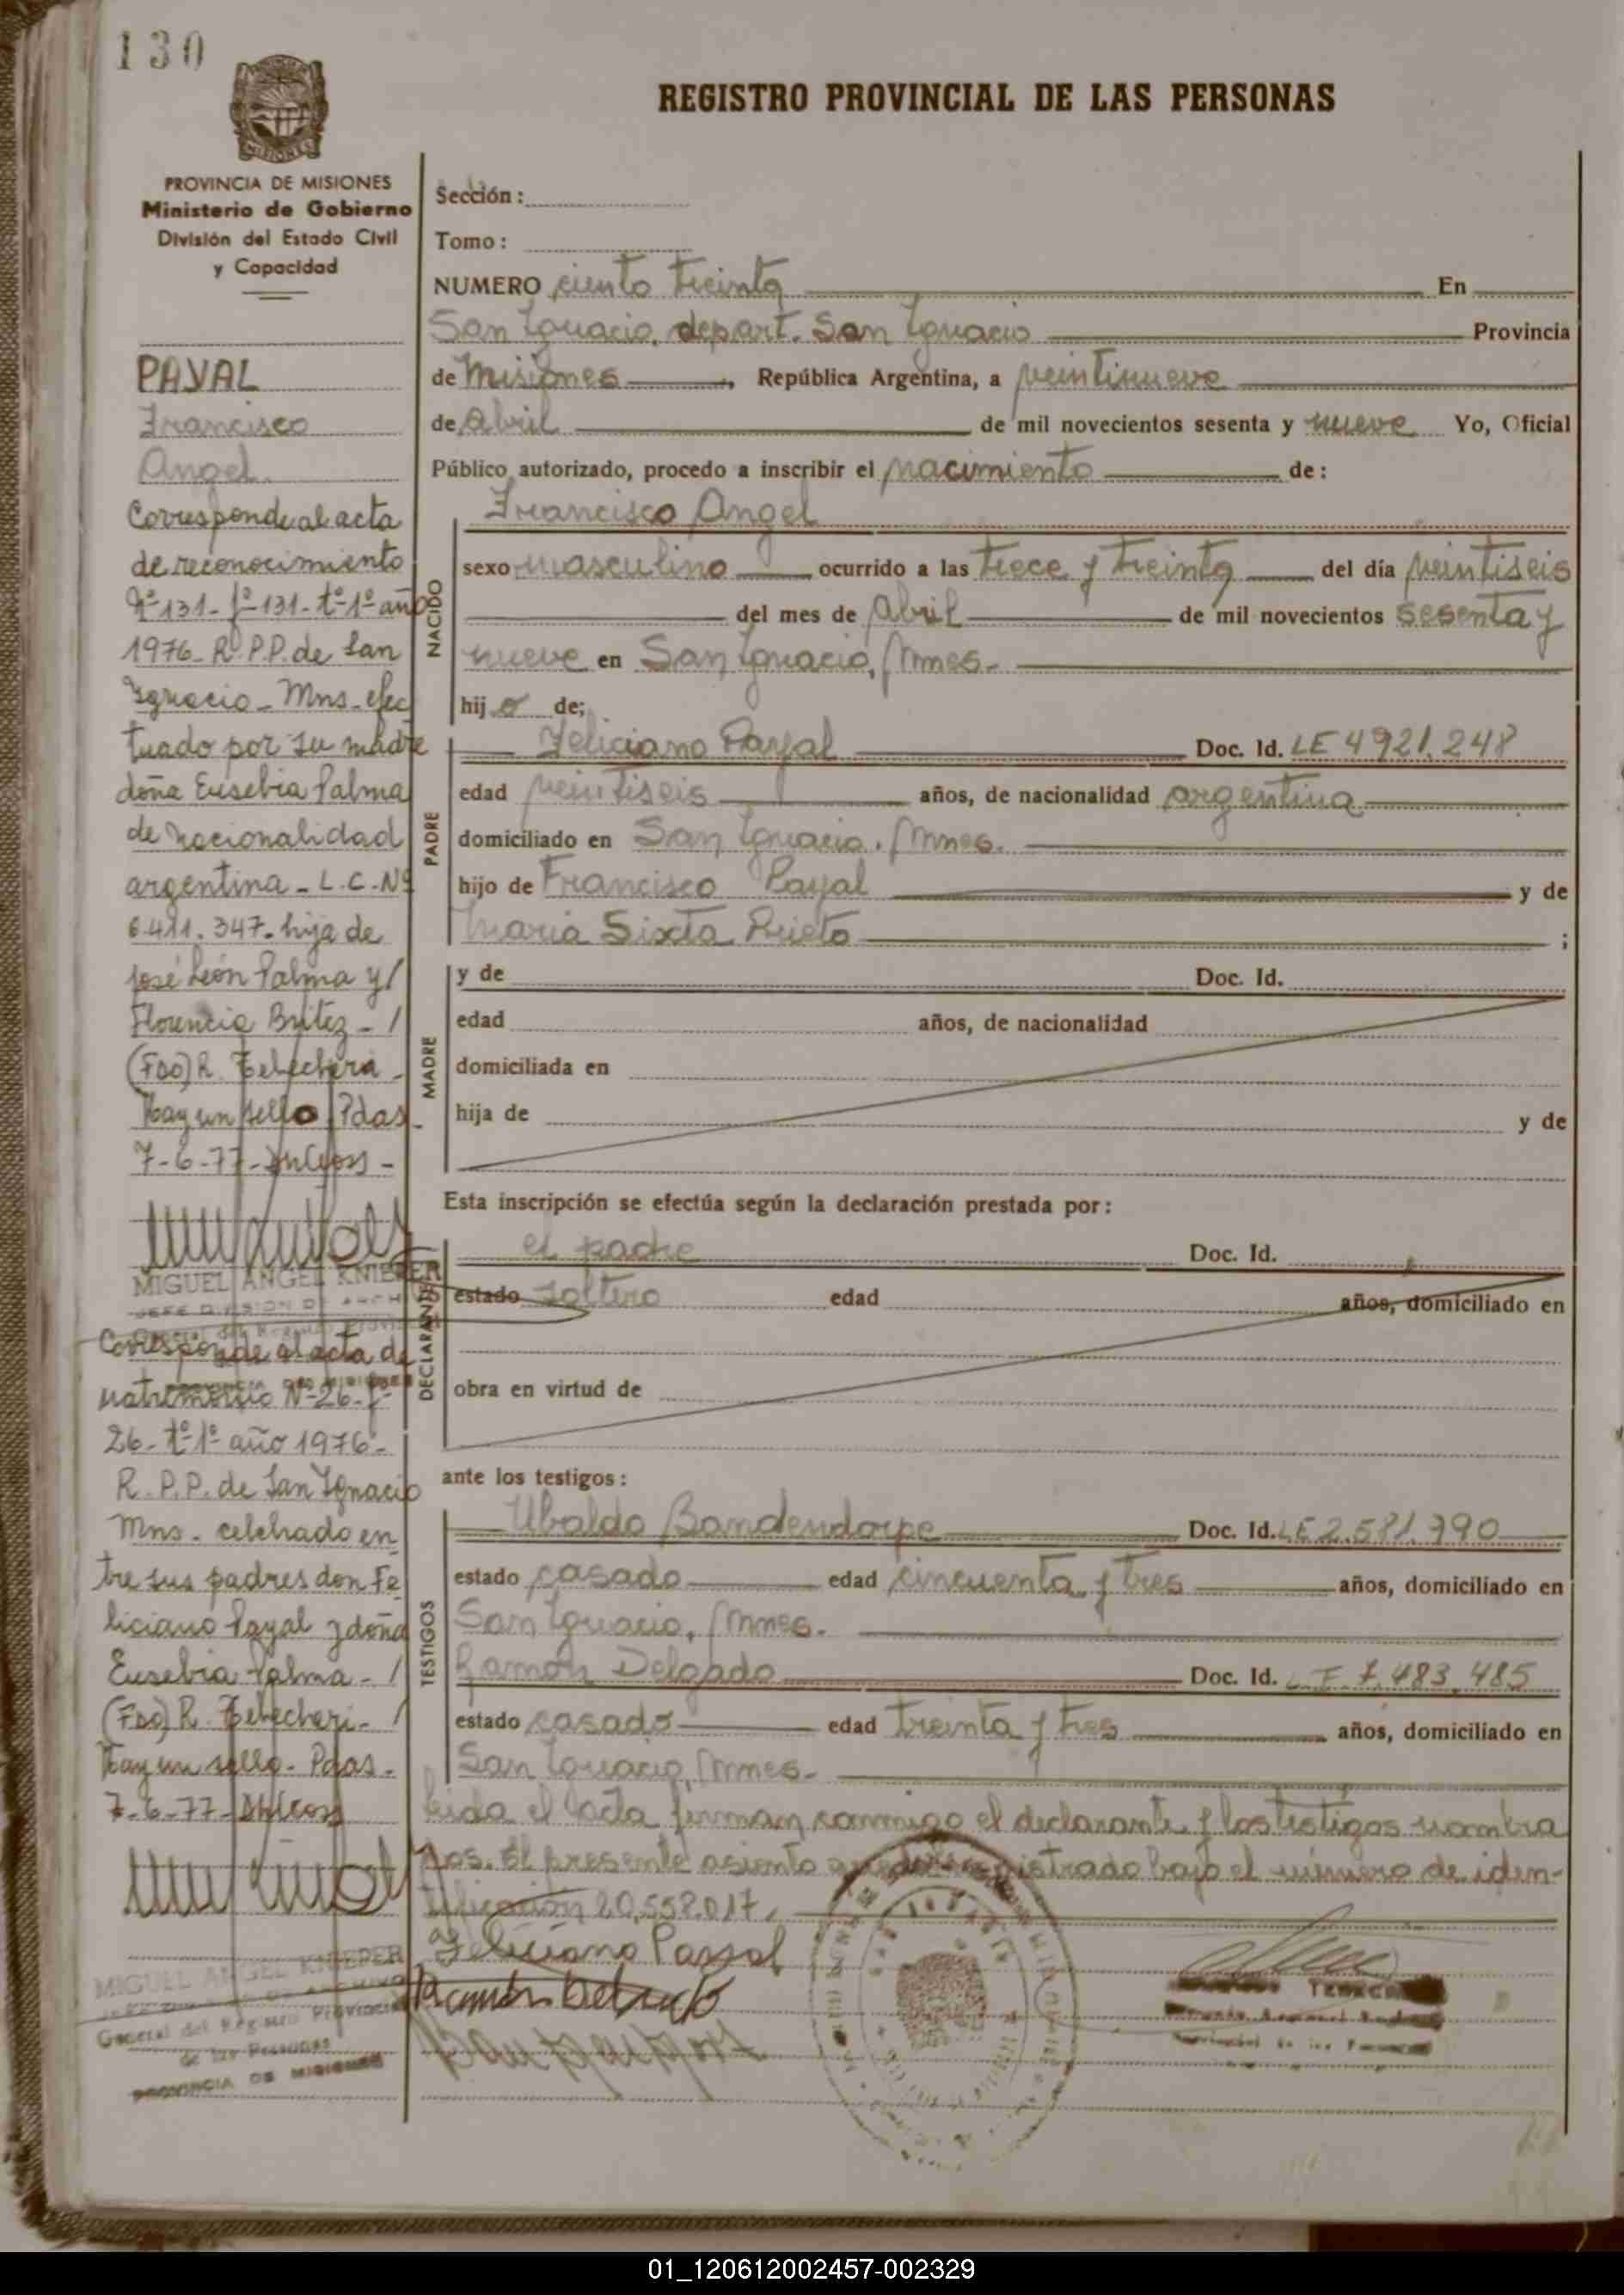 130
REGISTRO PROVINCIAL DE LAS PERSONAS
MISIONES
PROVINCIA DE MISIONES
Ministerio de Gobierno
División del Estado Civil
y Capacidad
PAYAL
Francisco
Angel.
Corresponde al acta
de reconocimiento
Nº 131 - fº 131 - tº 1º año
1976 - R.P.P. de San
Ignacio - Mns - efec
tuado por su madre
doña Eusebia Palma
de nacionalidad
argentina - L.C. Nº
6.411.347 - hija de
José León Palma y /
Florencia Britez - /
(Fdo) R.
Hay un sello Pdas -
7-6-77 -
MIGUEL ANGEL KNIEPER
Corresponde al acta de
matrimonio Nº 26 - fº
26 - tº 1º año 1976 -
R.P.P. de San Ignacio
Mns - celebrado en
tre sus padres don Fe
liciano Payal y doña
Eusebia Palma - /
(Fdo) R.
Hay un sello - Pdas -
7-6-77 -
MIGUEL ANGEL KNIEPER
General del Registro Provincial
de las Personas
PROVINCIA DE MISIONES
Sección:
Tomo:
NUMERO ciento treinta En
San Ignacio, depart. San Ignacio Provincia
de Misiones, República Argentina, a veintinueve
de Abril de mil novecientos sesenta y nueve Yo, Oficial
Público autorizado, procedo a inscribir el nacimiento de:
NACIDO
Francisco Angel
sexo masculino ocurrido a las trece y treinta del día veintiseis
del mes de Abril de mil novecientos sesenta y
nueve en San Ignacio, Mnes.
hijo de;
PADRE
Feliciano Payal Doc. Id. LE 4921.248
edad veintiseis años, de nacionalidad argentina
domiciliado en San Ignacio, Mnes.
hijo de Francisco Payal y de
Maria Sixta Prieto ;
MADRE
y de Doc. Id.
edad años, de nacionalidad
domiciliada en
hija de y de
Esta inscripción se efectúa según la declaración prestada por:
DECLARANTE
el padre Doc. Id.
estado soltero edad años, domiciliado en
obra en virtud de
ante los testigos:
TESTIGOS
Ubaldo Bandendorpe Doc. Id. LE 2.581.790
estado casado edad cincuenta y tres años, domiciliado en
San Ignacio, Mnes.
Ramón Delgado Doc. Id. LE 7.483.485
estado casado edad treinta y tres años, domiciliado en
San Ignacio, Mnes.
leida el acta firman conmigo el declarante y los testigos nombra
dos. El presente asiento queda registrado bajo el número de iden-
tificación 20.558.017,
Feliciano Payal
Ramón Delgado
01_120612002457-002329